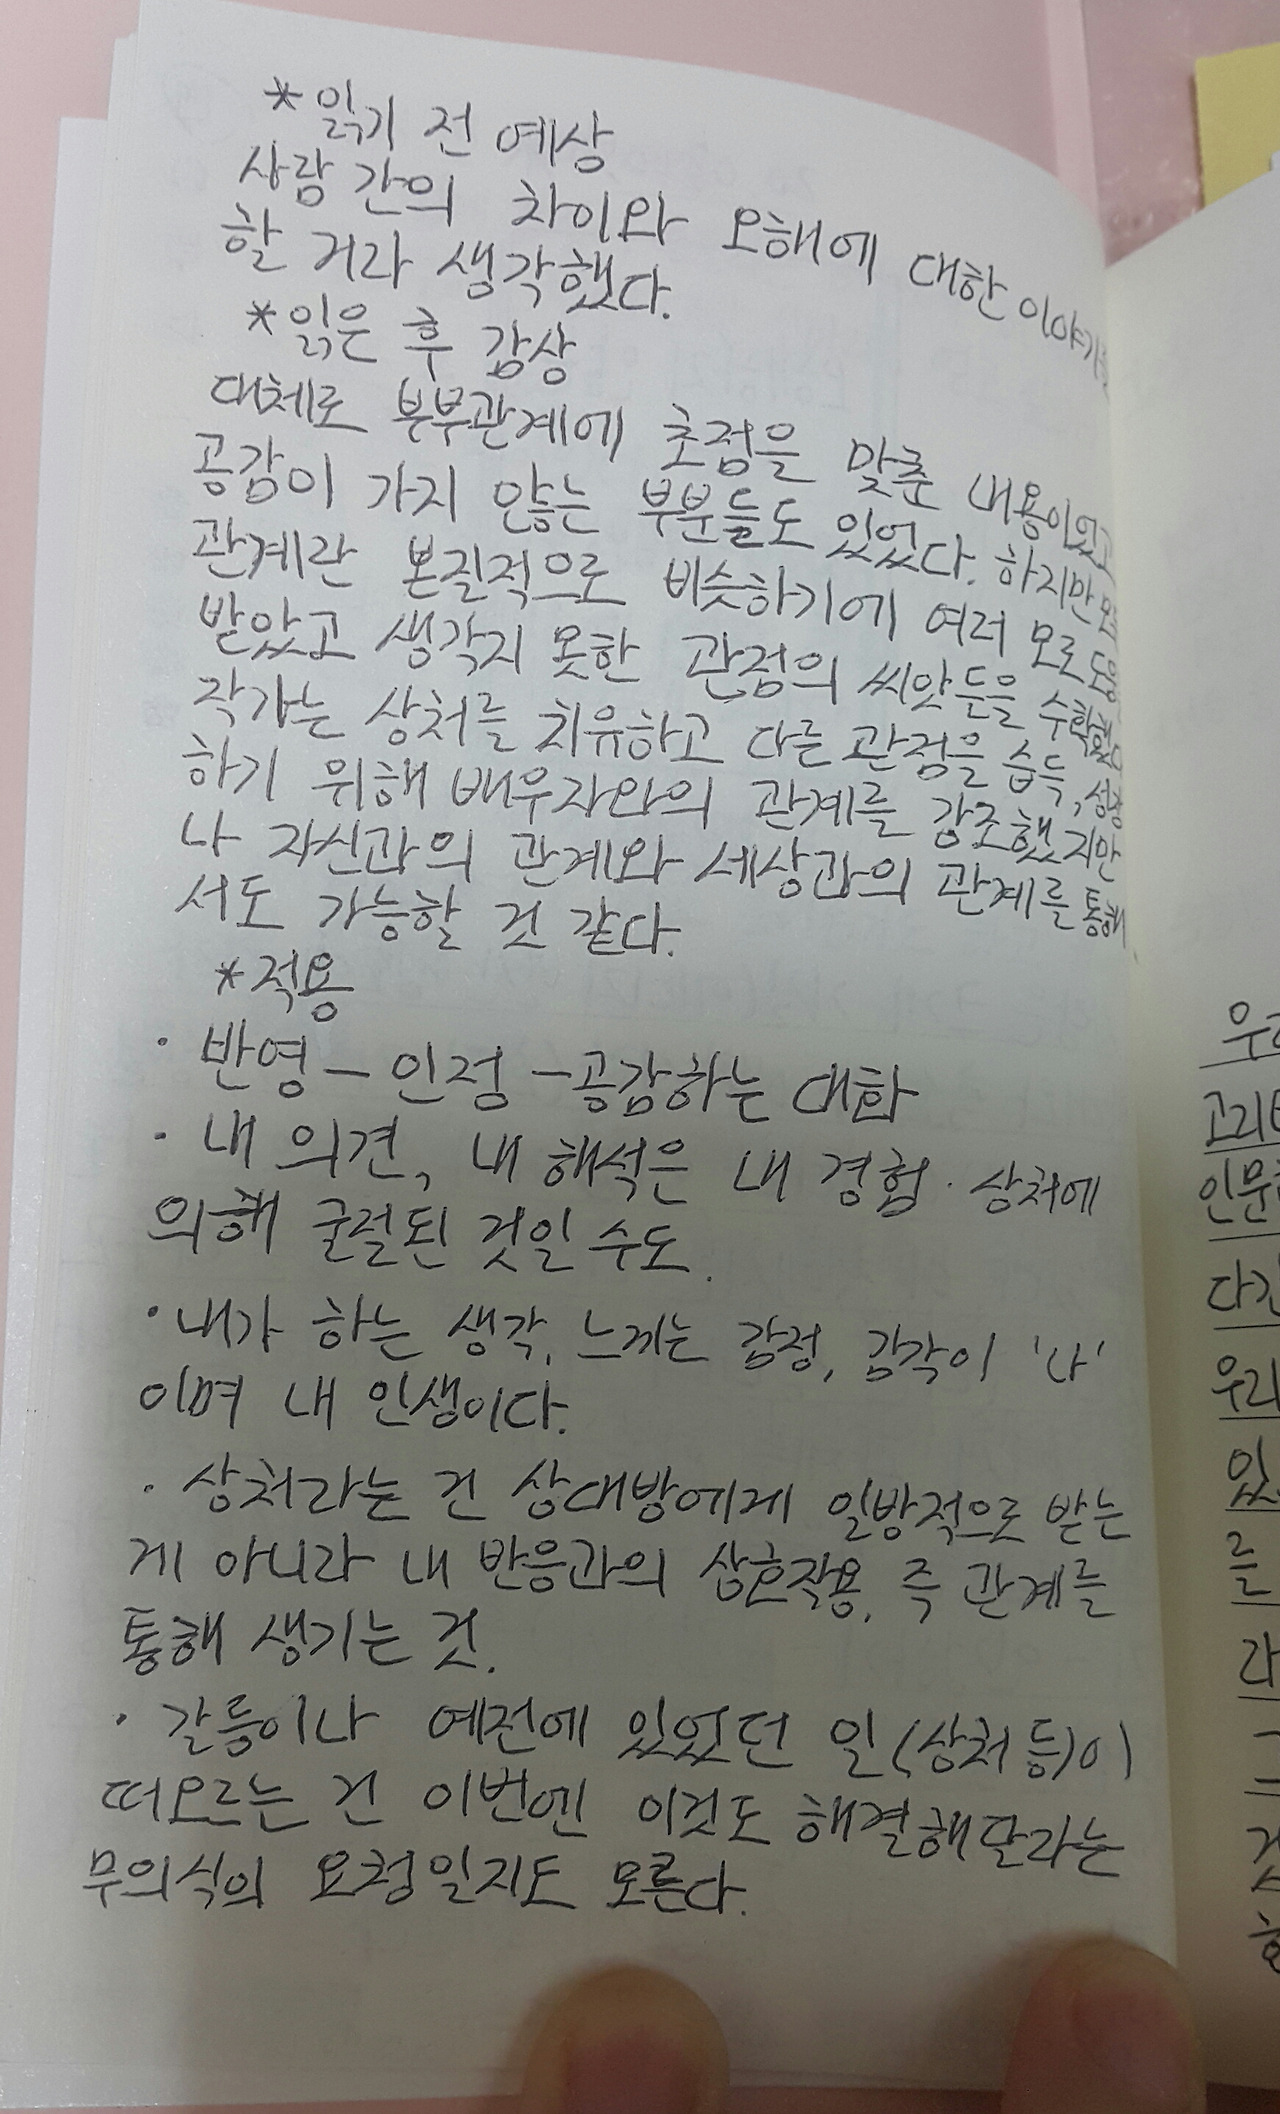 *읽기 전 예상
사람 간의 차이와 오해에 대한 이야기를
할 거라 생각했다.
*읽은 후 감상
대체로 부부관계에 초점을 맞춘 내용이었고
공감이 가지 않는 부분들도 있었다. 하지만 모든
관계란 본질적으로 비슷하기에 여러 모로 도움
받았고 생각지 못한 관점의 씨앗들을 수확했다
작가는 상처를 치유하고 다른 관점을 습득, 성장
하기 위해 배우자와의 관계를 강조했지만
나 자신과의 관계와 세상과의 관계를 통해
서도 가능할 것 같다.
*적용
· 반영 - 인정 - 공감하는 대화
· 내 의견, 내 해석은 내 경험 · 상처에
의해 굴절된 것일 수도.
· 내가 하는 생각, 느끼는 감정, 감각이 '나'
이며 내 인생이다.
· 상처라는 건 상대방에게 일방적으로 받는
게 아니라 내 반응과의 상호작용, 즉 관계를
통해 생기는 것.
· 갈등이나 예전에 있었던 일(상처 등)이
떠오르는 건 이번엔 이것도 해결해달라는
무의식의 요청일지도 모른다.
고리
인문
우리
를
라